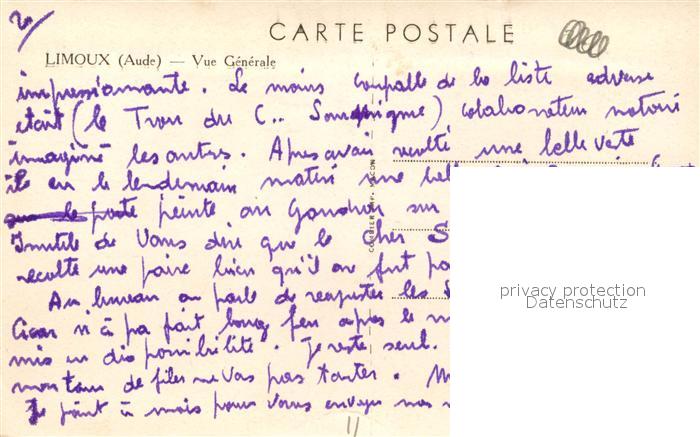 2/
CARTE POSTALE
LIMOUX (Aude) — Vue Générale
impressionnante. Le moins coupable de la liste adverse
etait (le Trou du C.. ) colaborateur notoire
imagine les autres. Apres avoir recolté une belle veste
il eu le lendemain matin une bell
porte peinte au Goudron sur
Inutile de Vous dire que le Cher S
recolte une paire bien qu'il ou fut pa
Au bureau on parle de reajuster les
n'a pa fait long feu apres le
mis en disponibilité. Je reste seul.
de files ne Vas pas tarder. M
Je joint à mois pour Vous envoyer nos
COMBIER IMP. MACON
11
privacy protection
Datenschutz